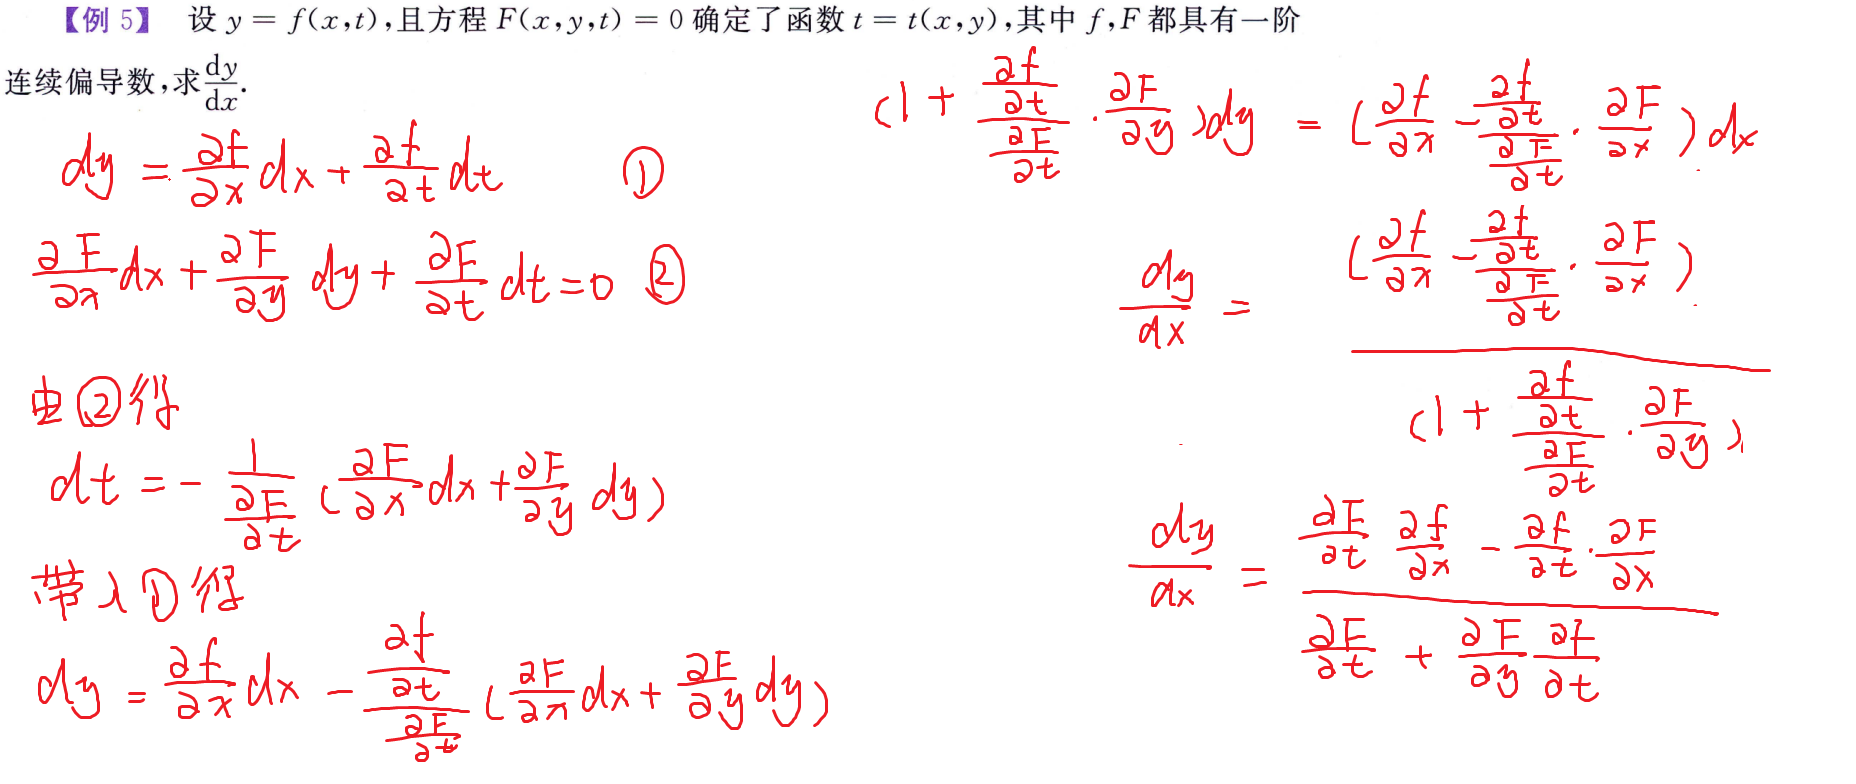 【例 5】 设 y = f(x,t),且方程 F(x,y,t) = 0 确定了函数 t = t(x,y),其中 f,F 都具有一阶
连续偏导数,求 dy/dx.
dy = ∂f/∂x dx + ∂f/∂t dt ①
∂F/∂x dx + ∂F/∂y dy + ∂F/∂t dt = 0 ②
由②得
dt = - 1/(∂F/∂t) (∂F/∂x dx + ∂F/∂y dy)
带入①得
dy = ∂f/∂x dx - (∂f/∂t)/(∂F/∂t) (∂F/∂x dx + ∂F/∂y dy)
(1 + (∂f/∂t)/(∂F/∂t) · ∂F/∂y) dy = (∂f/∂x - (∂f/∂t)/(∂F/∂t) · ∂F/∂x) dx
dy/dx = (∂f/∂x - (∂f/∂t)/(∂F/∂t) · ∂F/∂x) / (1 + (∂f/∂t)/(∂F/∂t) · ∂F/∂y)
dy/dx = (∂F/∂t ∂f/∂x - ∂f/∂t · ∂F/∂x) / (∂F/∂t + ∂F/∂y ∂f/∂t)